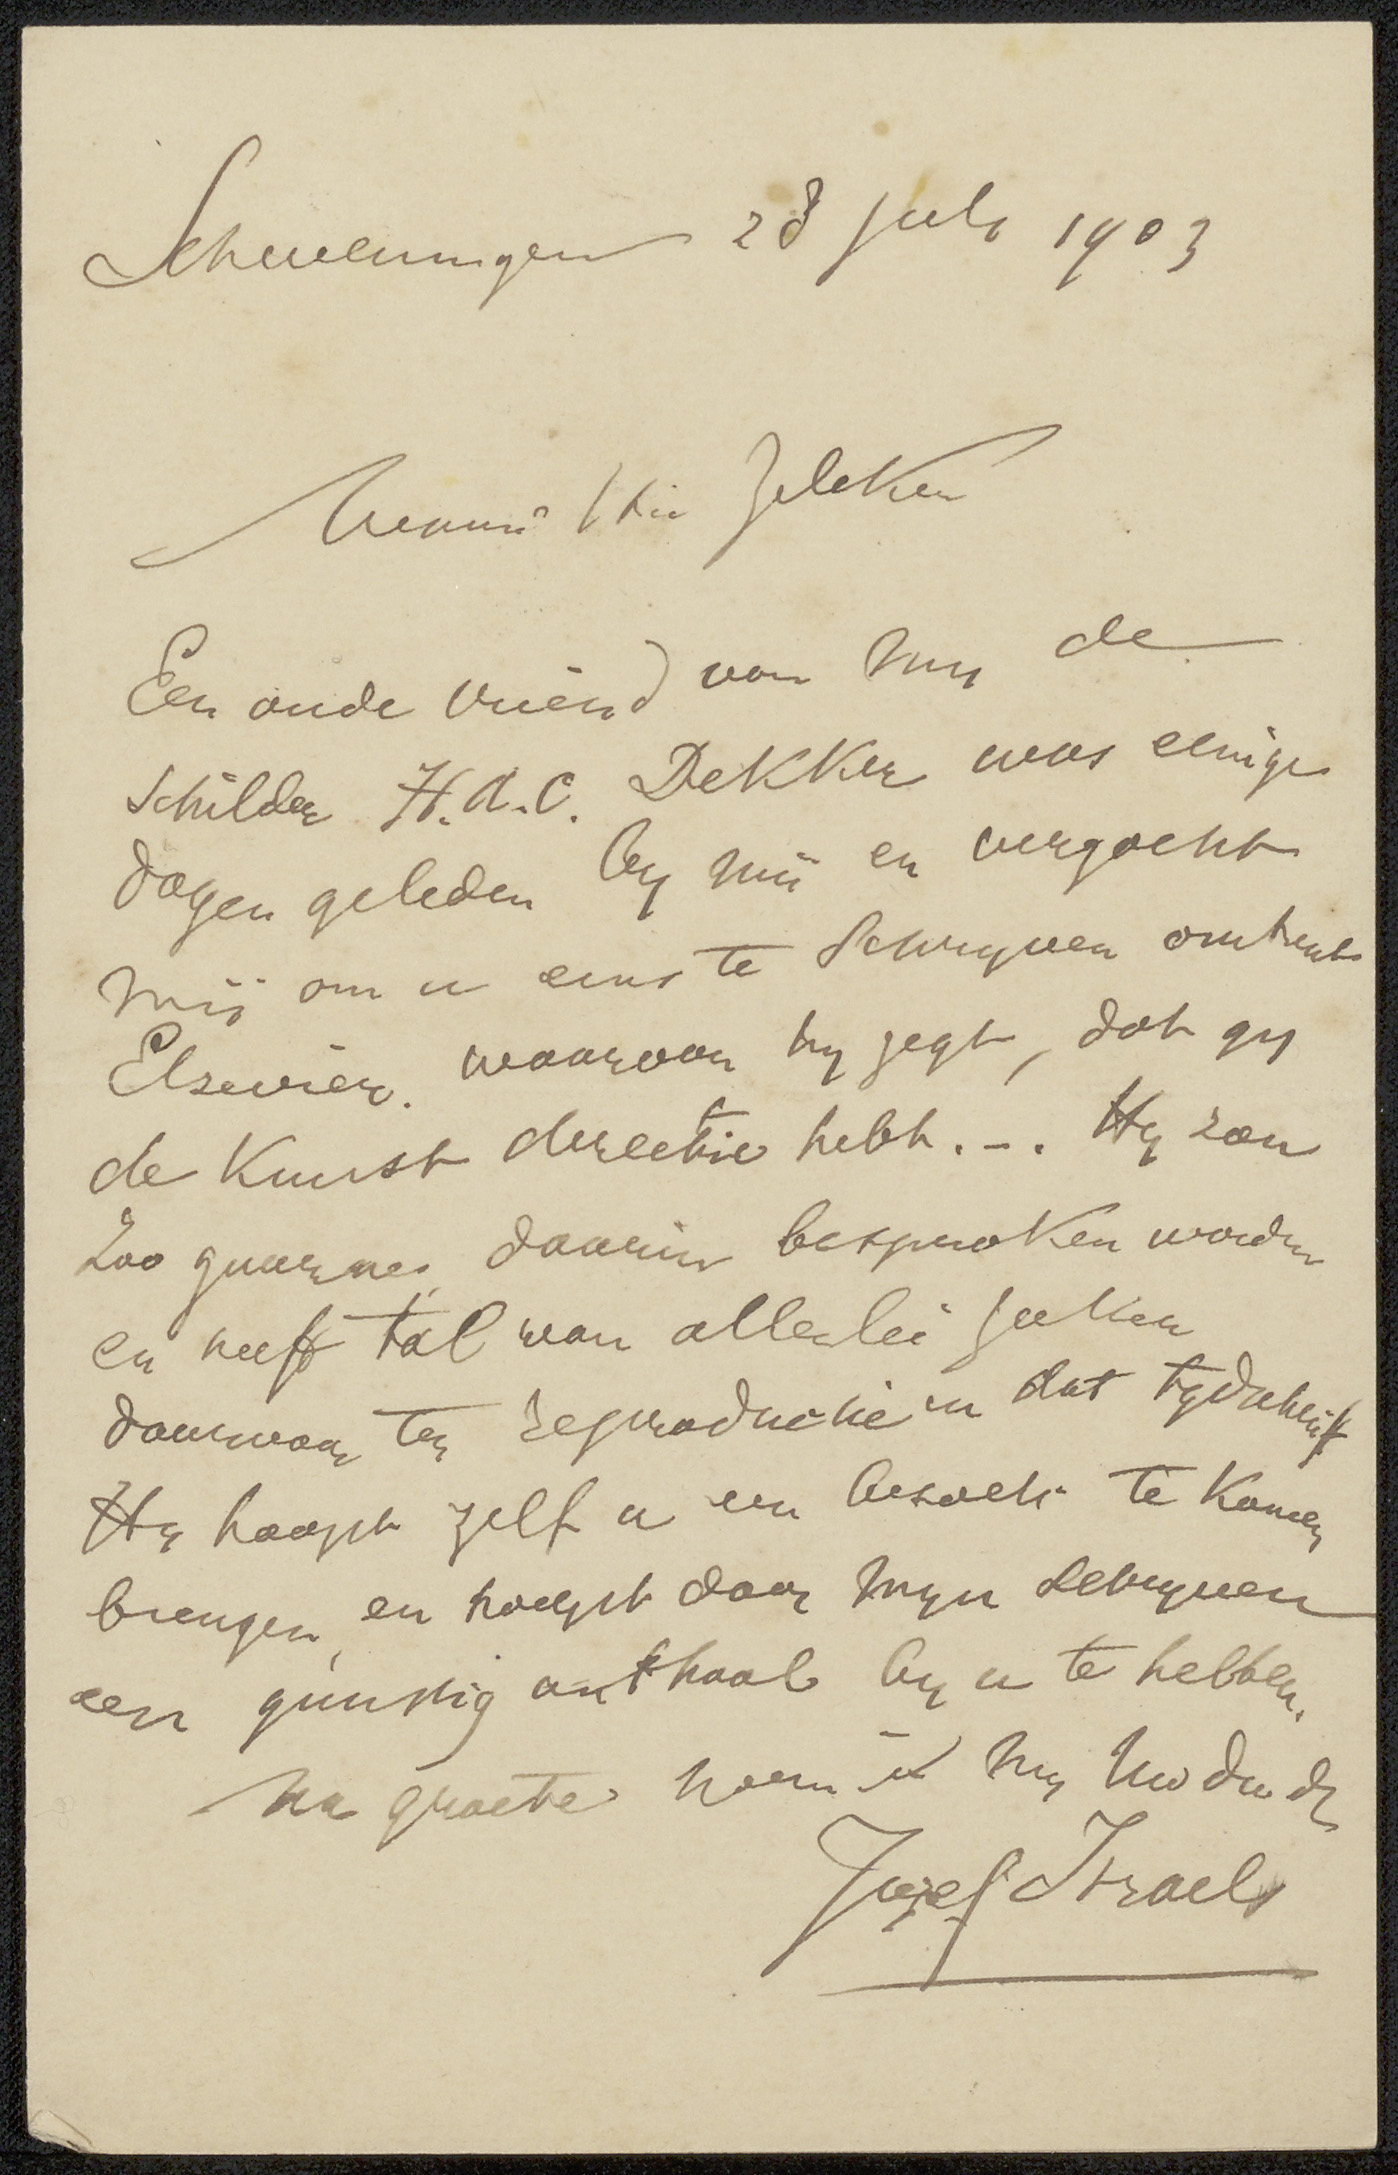 Scheveningen 28 Juli 1903
Zilcken
Een oude vriend van my de
schilder H.A.C. Dekker was eenige
dagen geleden by mij en verzocht
mij om u eens te schryven omtrent
Elsevier. waarvan hy zegt, dat gy
de Kunst directie hebt. -. Hy zou
zoo gaarne daarin besproken worden
en heeft tal van allerlei zaken
daarvoor ter reproductie in dat tydschrift
Hy hoopt zelf u een bezoek te komen
brengen, en hoopt door myn schryven
een gunstig onthaal by u te hebben.
Na groete noem ik my Uw dw dr
Jozef Israels